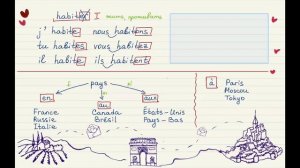 habiter I жить, проживать
j' habite nous habitons
tu habites vous habitez
il habite ils habitent
pays
en au aux
France Canada États-Unis
Russie Brésil Pays-Bas
Italie
à Paris
Moscou
Tokyo